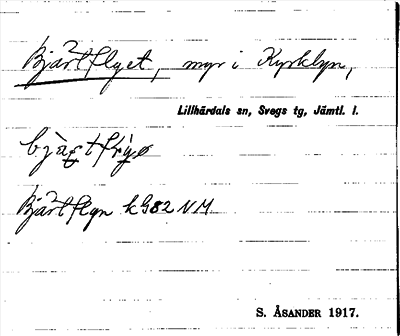 Bjärtflyet, myr i Kyrklyn,
Lillhärdals sn, Svegs tg, Jämtl. l.
Bjärtflyn kG82 NM
S. ÅSANDER 1917.